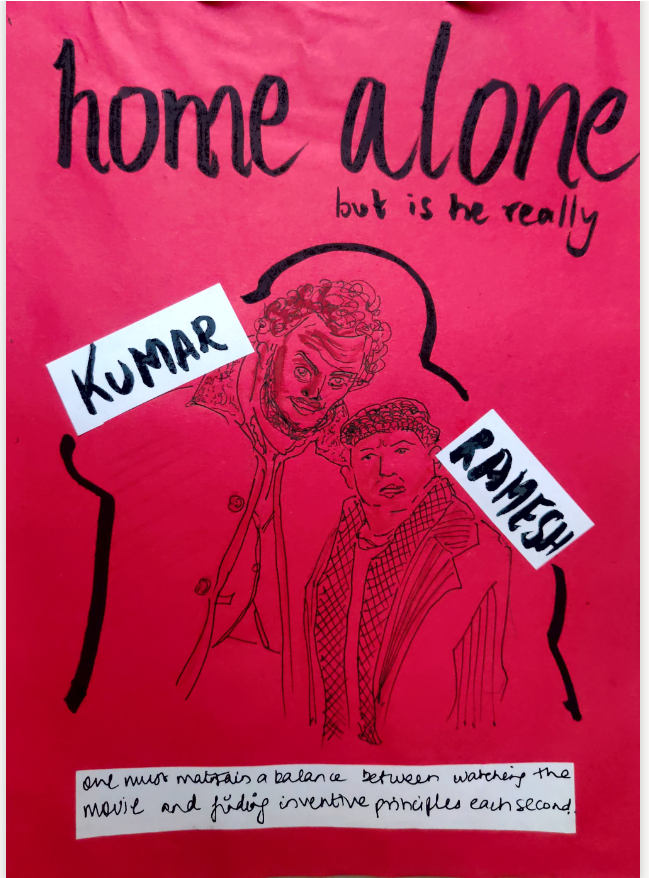 home alone
but is he really
KUMAR
RAMESH
one must maintain a balance between watching the
movie and finding inventive principles each second.